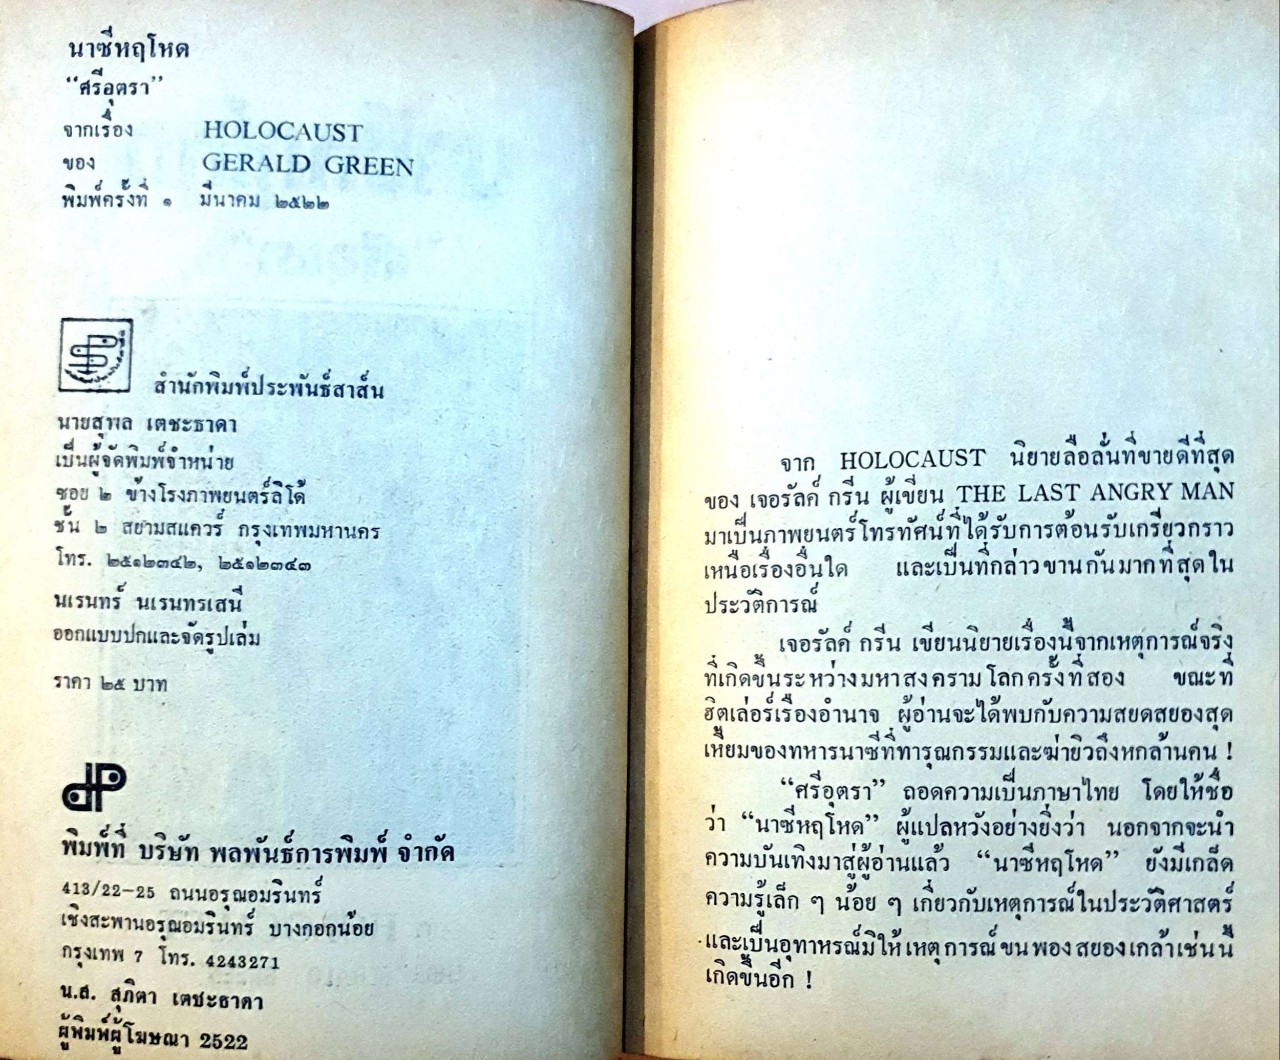 นาซีหฤโหด
“ศรีอุตรา”
จากเรื่อง HOLOCAUST
ของ GERALD GREEN
พิมพ์ครั้งที่ ๑ มีนาคม ๒๕๒๒
สำนักพิมพ์ประพันธ์สาส์น
นายสุพล เตชะธาดา
เป็นผู้จัดพิมพ์จำหน่าย
ซอย ๒ ข้างโรงภาพยนตร์ลิโด้
ชั้น ๒ สยามสแควร์ กรุงเทพมหานคร
โทร. ๒๕๑๒๓๔๒, ๒๕๑๒๓๔๓
นเรนทร์ นเรนทรเสนี
ออกแบบปกและจัดรูปเล่ม
ราคา ๒๕ บาท
พิมพ์ที่ บริษัท พลพันธ์การพิมพ์ จำกัด
413/22-25 ถนนอรุณอมรินทร์
เชิงสะพานอรุณอมรินทร์ บางกอกน้อย
กรุงเทพ 7 โทร. 4243271
น.ส. สุภิตา เตชะธาดา
ผู้พิมพ์ผู้โฆษณา 2522
จาก HOLOCAUST นิยายลือลั่นที่ขายดีที่สุด
ของ เจอรัลด์ กรีน ผู้เขียน THE LAST ANGRY MAN
มาเป็นภาพยนตร์โทรทัศน์ที่ได้รับการต้อนรับเกรียวกราว
เหนือเรื่องอื่นใด และเป็นที่กล่าวขานกันมากที่สุดใน
ประวัติการณ์
เจอรัลด์ กรีน เขียนนิยายเรื่องนี้จากเหตุการณ์จริง
ที่เกิดขึ้นระหว่างมหาสงครามโลกครั้งที่สอง ขณะที่
ฮิตเล่อร์เรืองอำนาจ ผู้อ่านจะได้พบกับความสยดสยองสุด
เหี้ยมของทหารนาซีที่ทารุณกรรมและฆ่ายิวถึงหกล้านคน !
“ศรีอุตรา” ถอดความเป็นภาษาไทย โดยให้ชื่อ
ว่า “นาซีหฤโหด” ผู้แปลหวังอย่างยิ่งว่า นอกจากจะนำ
ความบันเทิงมาสู่ผู้อ่านแล้ว “นาซีหฤโหด” ยังมีเกล็ด
ความรู้เล็ก ๆ น้อย ๆ เกี่ยวกับเหตุการณ์ในประวัติศาสตร์
และเป็นอุทาหรณ์มิให้เหตุการณ์ขนพองสยองเกล้าเช่นนี้
เกิดขึ้นอีก !